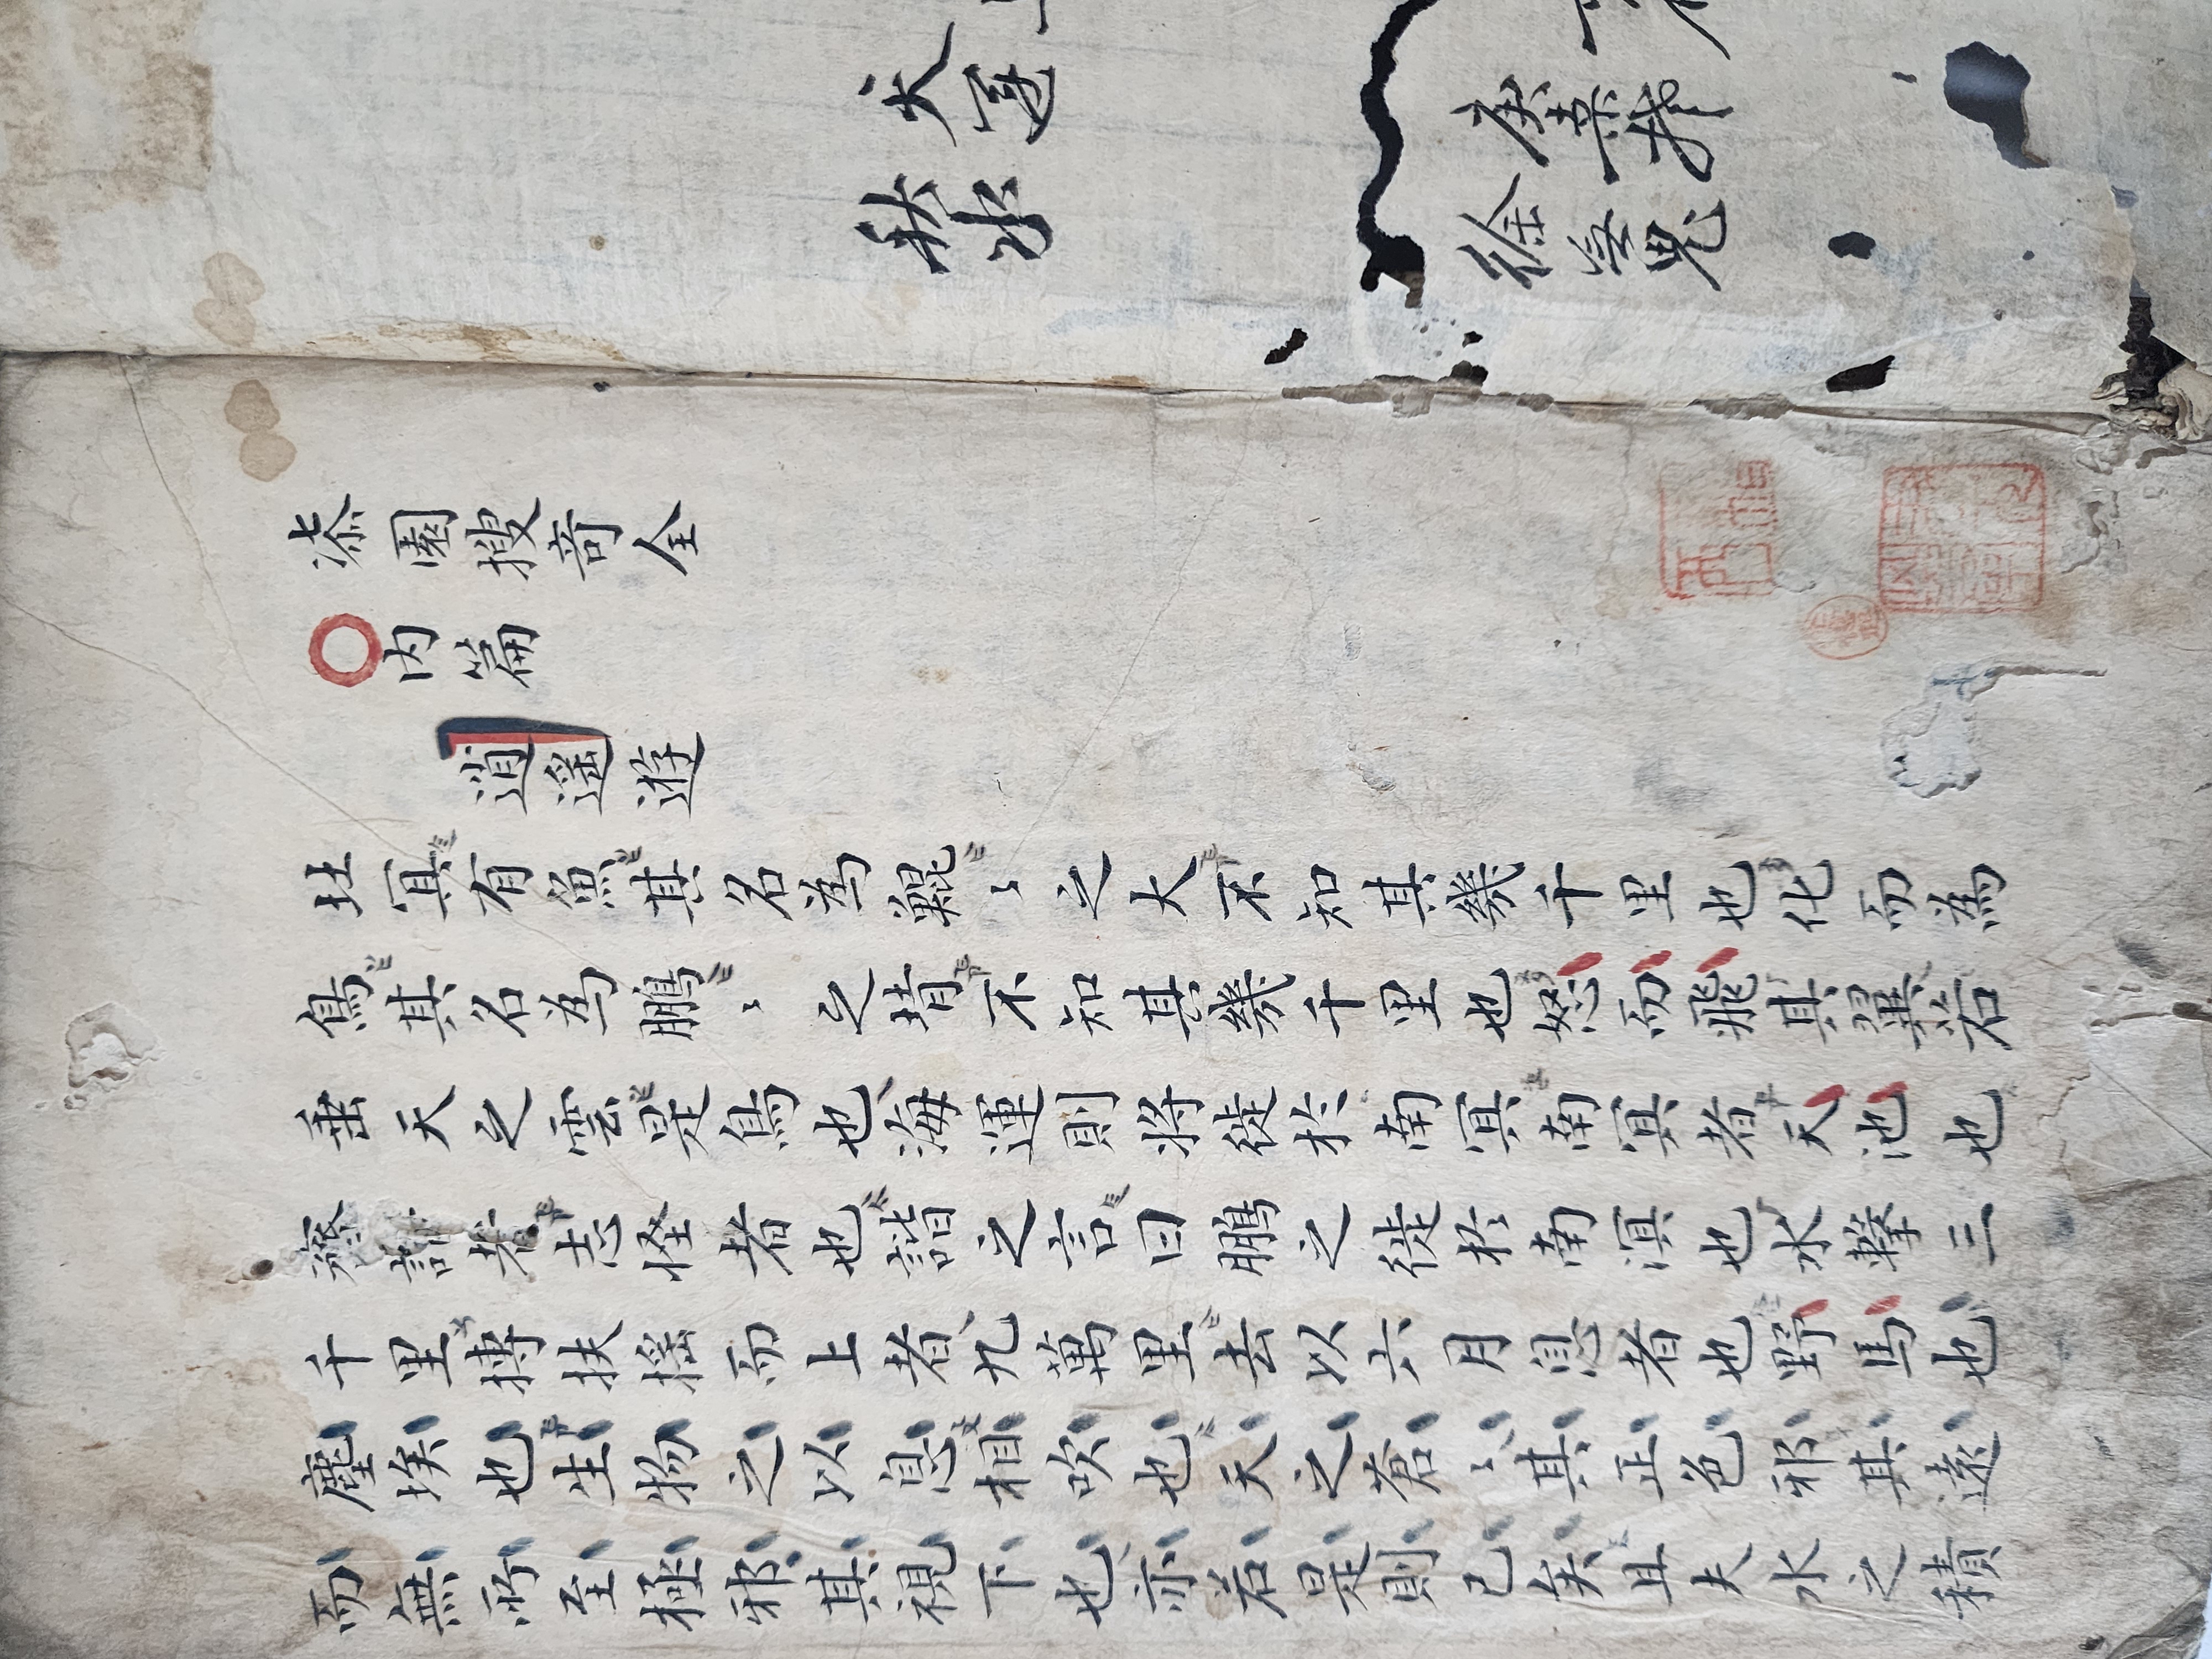 天運 庚桒椘
秋水 徐无鬼
漆園搜竒全
○内篇
逍遥遊
北冥有魚其名為鯤〻之大不知其幾千里也化而為
鳥其名為鵬〻之背不知其幾千里也怒而飛其翼若
垂天之雲是鳥也海運則將徙於南冥南冥者天池也
齊諧者志怪者也諧之言曰鵬之徙於南溟也水擊三
千里摶扶摇而上者九萬里去以六月息者也野馬也
塵埃也生物之以息相吹也天之蒼〻其正色邪其遠
而無所至極邪其視下也亦若是則已矣且夫水之積